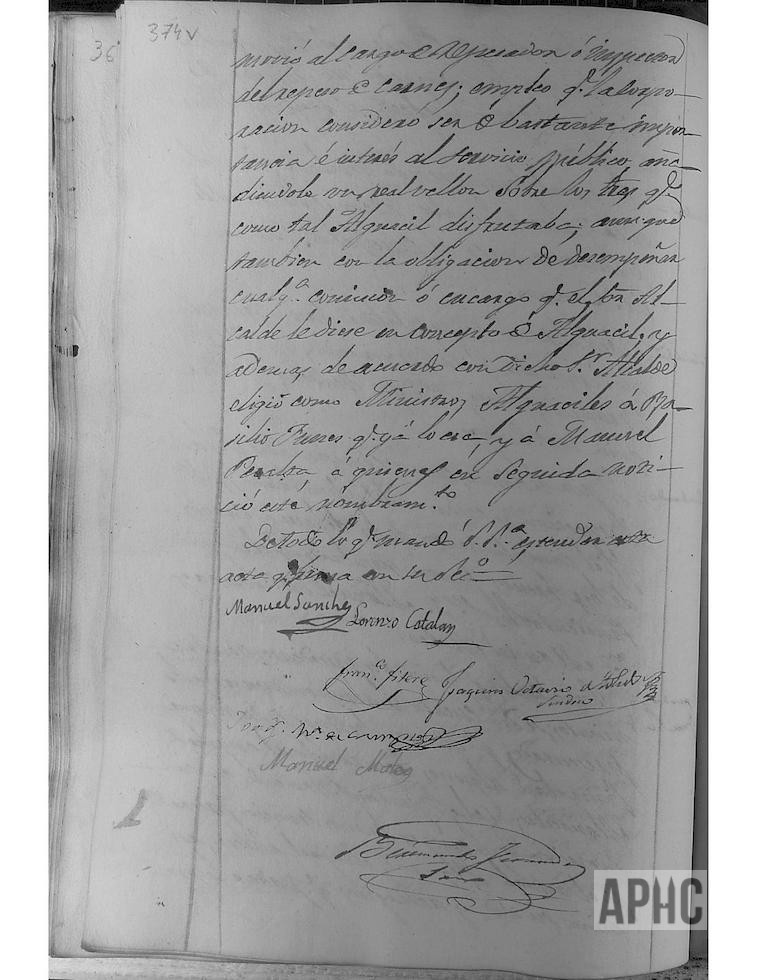 36
374v
movió al cargo de repesador ó inspector
del repeso de carnes; empleo q.e la corpo-
racion consideró ser de bastante impor-
tancia é interés al servicio público, aña-
diendole un real vellon sobre los tres q.e
como tal Alguacil disfrutaba; aunque
tambien con la obligacion de desempeñar
cualq.a comision ó encargo q.e el Sor Al-
calde le diese en concepto de Alguacil, y
ademas de acuerdo con dicho S.r Alcalde
eligió como Ministros Alguaciles á Ba-
silio Funes q.e yá lo era, y á Manuel
Peralta á quienes en seguida noti-
ció este nombram.to
De todo lo q.e mandó S.S.a estender esta
acta q.e firma
Manuel Sanchez
Lorenzo Catalan
Fran.co Jitere
Joaquin Octavio de Toledo
Sindico
Manuel Mateo
Fernandez
APHC